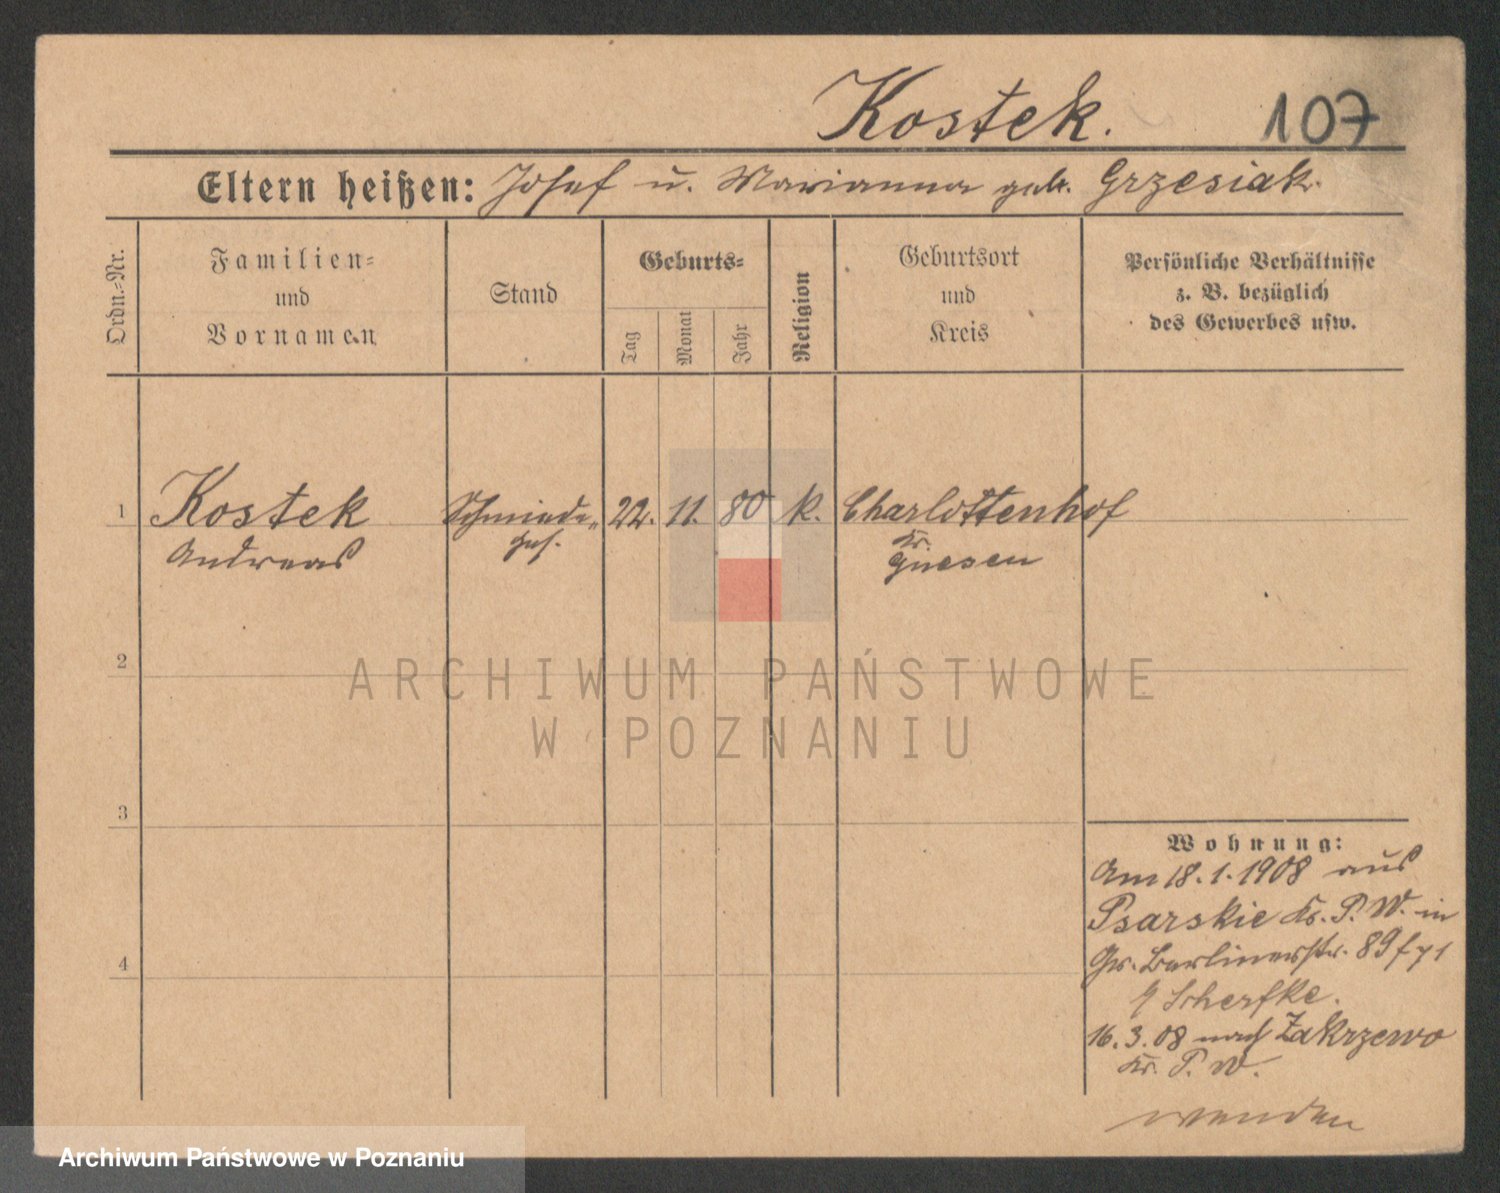 Kostek. 107
Eltern heißen: Josef u. Marianna geb. Grzesiak.
Ordn.-Nr.
Familien-
und
Vornamen
Stand
Geburts-
Tag
Monat
Jahr
Religion
Geburtsort
und
Kreis
Persönliche Verhältnisse
z. B. bezüglich
des Gewerbes usw.
1 Kostek Schmiede- 22. 11. 80 k. Charlottenhof
Andreas ges. Kr.
Gnesen
2
ARCHIWUM PAŃSTWOWE
W POZNANIU
3
Wohnung:
Am 18.1.1908 aus
Psarskie Kr. P. W. in
4
Gr. Berlinerstr. 89
Scherfke.
16.3.08 nach Zakrzewo
Kr. P. W.
wenden
Archiwum Państwowe w Poznaniu